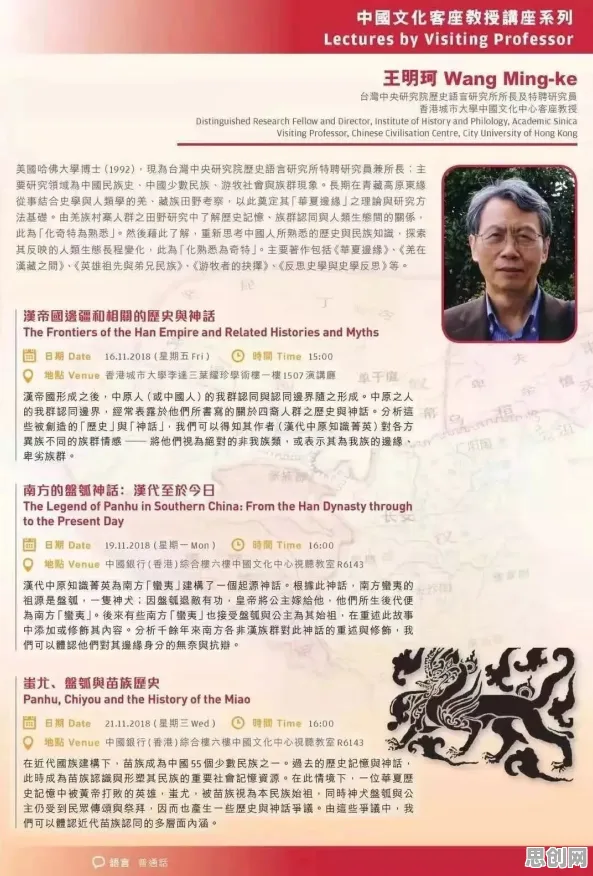 中國文化客座教授講座系列
Lectures by Visiting Professor
王明珂 Wang Ming-ke
台灣中央研究院歷史語言研究所所長及特聘研究員
香港城市大學中國文化中心客座教授
Distinguished Research Fellow and Director, Institute of History and Philology, Academic Sinica
Visiting Professor, Chinese Civilisation Centre, City University of Hong Kong
美國哈佛大學博士（1992），現為台灣中央研究院歷史語言研究所特聘研究員兼所長；主
要研究領域為中國民族史、中國少數民族、游牧社會與族群現象。長期在青藏高原東緣
從事結合史學與人類學的羌、藏族田野考察，以此奠定其「華夏邊緣」之理論與研究方
法基礎。由羌族村寨人群之田野研究中了解歷史記憶、族群認同與人類生態間的關係，
此為「化奇特為熟悉」。然後藉此了解，重新思考中國人所熟悉的歷史與民族知識，探索
其反映的人類生態長程變化，此為「化熟悉為奇特」。主要著作包括《華夏邊緣》、《羌在
漢藏之間》、《英雄祖先與弟兄民族》、《游牧者的抉擇》、《反思史學與史學反思》等。
漢帝國邊疆和相關的歷史與神話
The Frontiers of the Han Empire and Related Histories and Myths
日期 Date 16.11.2018 (星期五 Fri) 時間 Time 15:00
地點 Venue 香港城市大學李達三葉耀珍學術樓一樓1507演講廳
漢帝國形成之後，中原人（或中國人）的我群認同與認同邊界隨之形成。中原之人
的我群認同邊界，經常表露於他們所書寫的關於四裔人群之歷史與神話。分析這
些被創造的「歷史」與「神話」，我們可以得知其作者（漢代中原知識菁英）對各方
異族不同的族群情感 —— 將他們視為絕對的非我族類，或表示其為我族的邊緣、
卑劣族群。
南方的盤瓠神話：漢代至於今日
The Legend of Panhu in Southern China: From the Han Dynasty through
to the Present Day
日期 Date 19.11.2018 (星期一 Mon) 時間 Time 16:00
地點 Venue 中國銀行(香港)綜合樓六樓中國文化中心視聽教室R6143
漢代中原知識菁英為南方「蠻夷」建構了一個起源神話。根據此神話，南方蠻夷的
祖源是盤瓠，一隻神犬；因盤瓠退敵有功，皇帝將公主嫁給他，他們所生後代便
為南方「蠻夷」。後來有些南方「蠻夷」也接受盤瓠與公主為其始祖，在重述此故事
中添加或修飾其內容。分析千餘年來南方各非漢族群對此神話的重述與修飾，我
們可以體認他們對其邊緣身分的無奈與抗辯。
蚩尤、盤瓠與苗族歷史
Panhu, Chiyou and the History of the Miao
日期 Date 21.11.2018 (星期三 Wed) 時間 Time 16:00
地點 Venue 中國銀行(香港)綜合樓六樓中國文化中心視聽教室R6143
在近代國族建構下，苗族成為中國55個少數民族之一。過去的歷史記憶與神話，
此時成為苗族認識與形塑其民族的重要社會記憶資源。在此情境下，一位華夏歷
史記憶中被黃帝打敗的英雄，蚩尤，被苗族視為本民族始祖，同時神犬盤瓠與公
主仍受到民眾傳頌與祭拜，因而也產生一些歷史與神話爭議。由這些爭議中，我
們可以體認近代苗族認同的多層面內涵。
語言 普通話
思创网